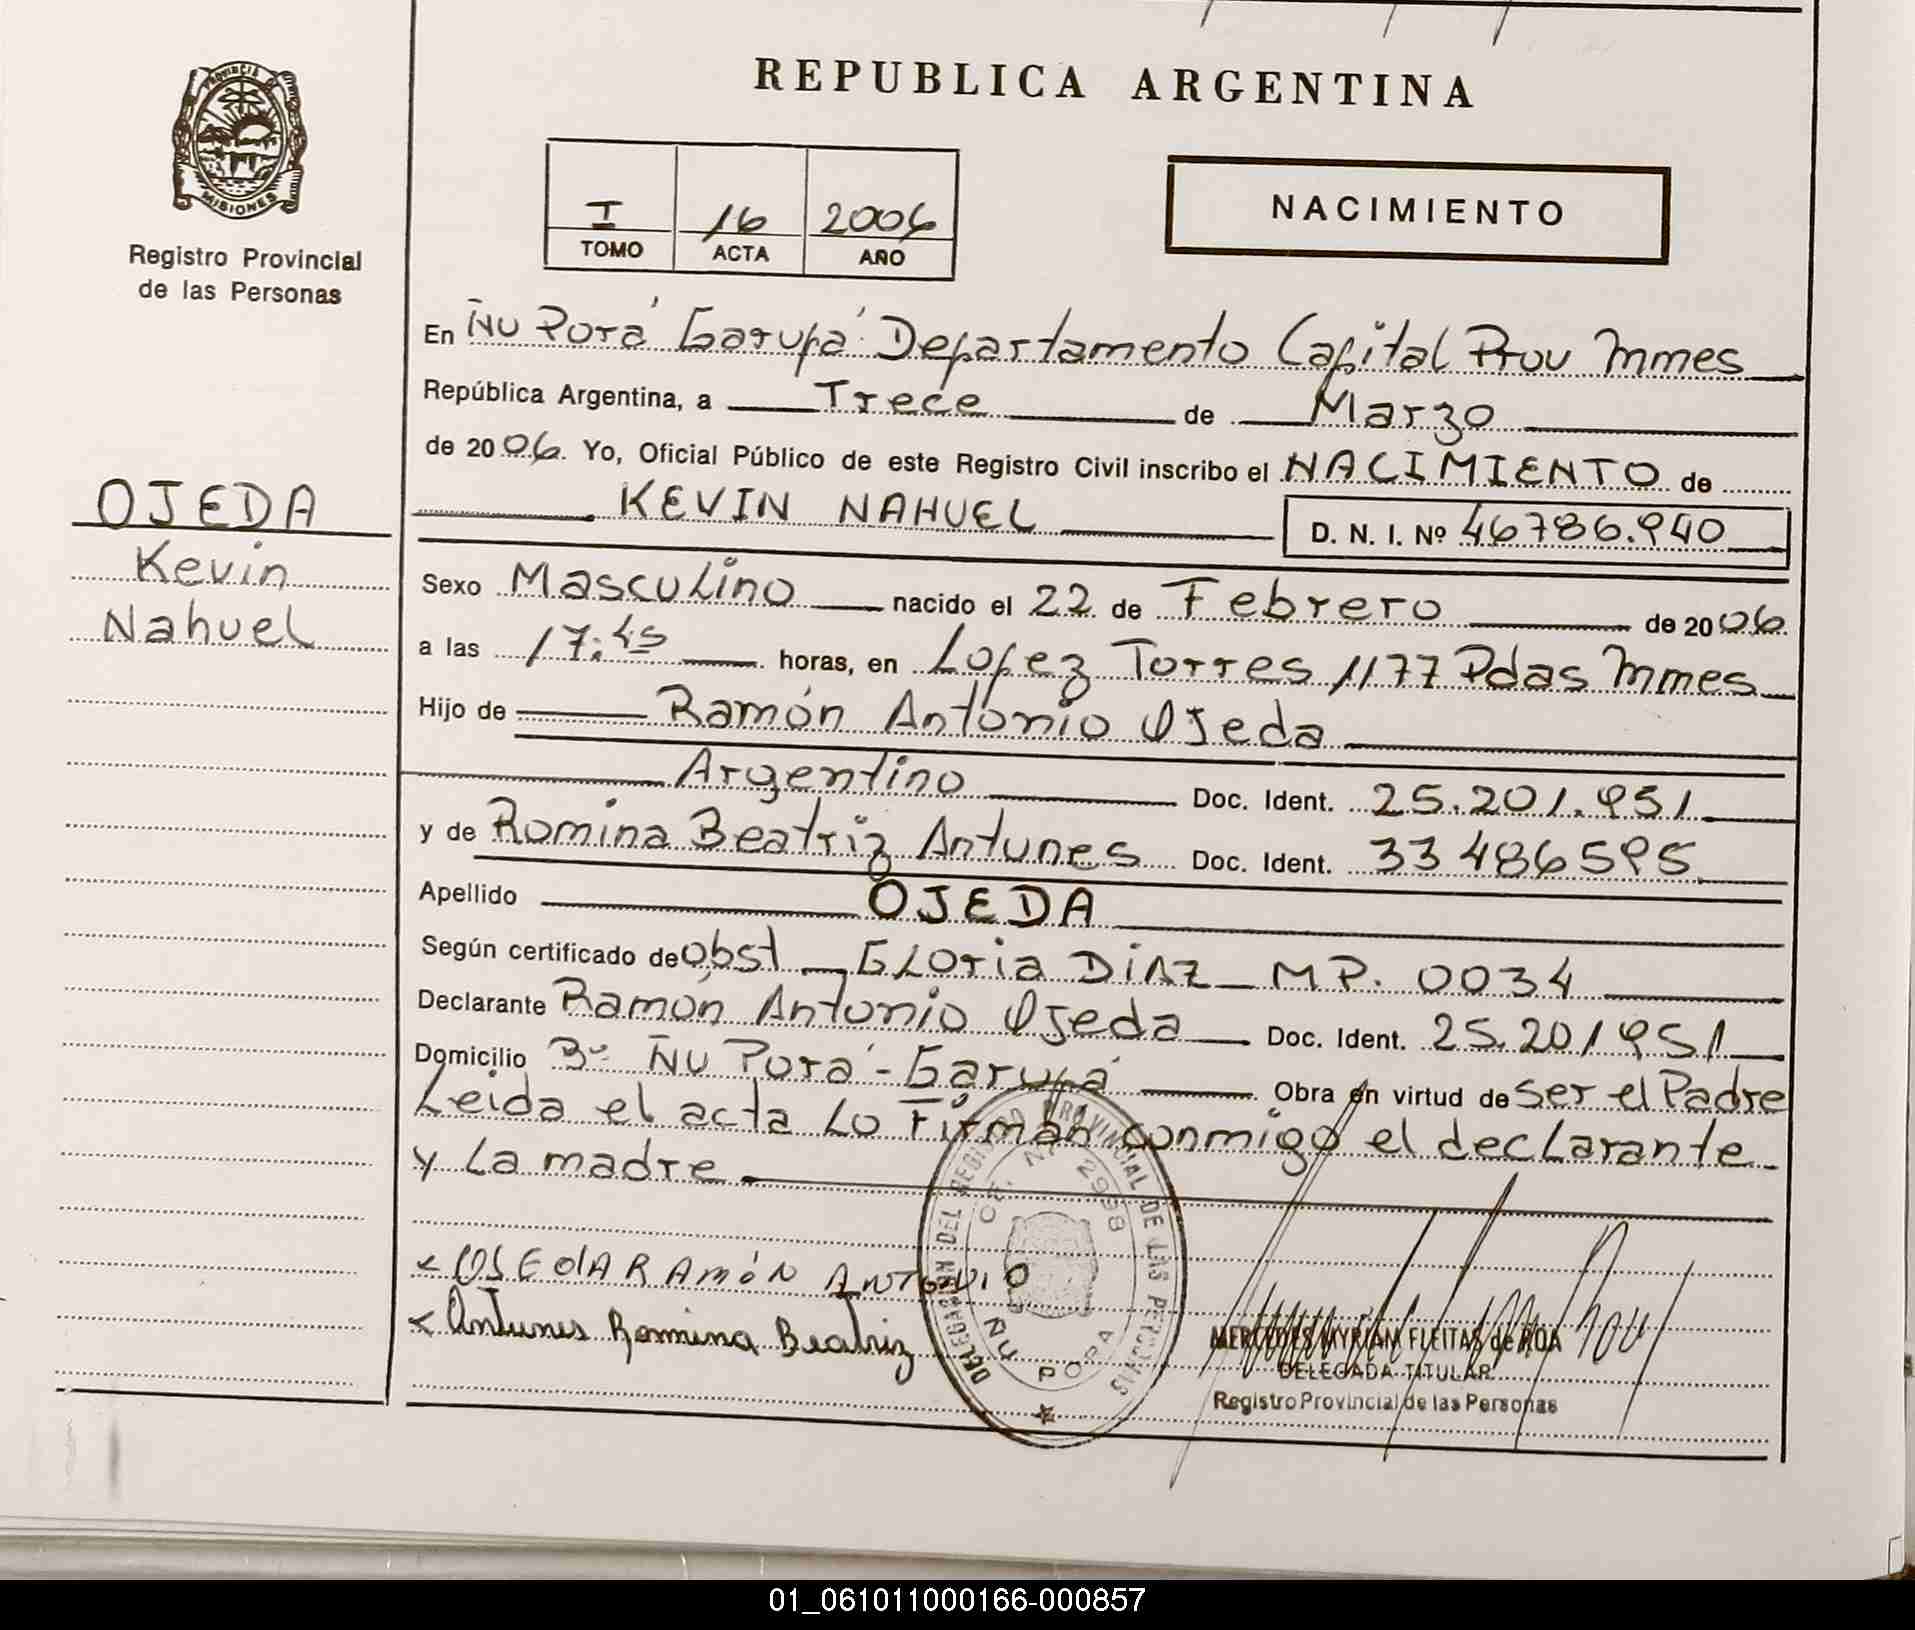 REPUBLICA ARGENTINA
PROVINCIA DE
MISIONES
Registro Provincial
de las Personas
I 16 2006
TOMO ACTA AÑO
NACIMIENTO
OJEDA
Kevin
Nahuel
En Ñu Porá Garupá Departamento Capital Prov Mmes
República Argentina, a Trece de Marzo
de 2006. Yo, Oficial Público de este Registro Civil inscribo el NACIMIENTO de
KEVIN NAHUEL D. N. I. Nº 46786.940
Sexo Masculino nacido el 22 de Febrero de 2006
a las 17:45 horas, en Lopez Torres 1177 Pdas Mmes
Hijo de Ramón Antonio Ojeda
Argentino Doc. Ident. 25.201.951
y de Romina Beatriz Antunes Doc. Ident. 33486595
Apellido OJEDA
Según certificado de Obst Gloria DiAZ MP. 0034
Declarante Ramón Antonio Ojeda Doc. Ident. 25.201951
Domicilio Bº Ñu Porá - Garupá Obra en virtud de ser el Padre
Leida el acta Lo Firman conmigo el declarante
y La madre
OJEdA RAmóN ANTONIO
Antunes Romina Beatriz
DELEGACION DEL REGISTRO PROVINCIAL DE LAS PERSONAS
OF. Nº 2998
ÑU PORA
MERCEDES MYRIAM FLEITAS de ROA
DELEGADA TITULAR
Registro Provincial de las Personas
01_061011000166-000857